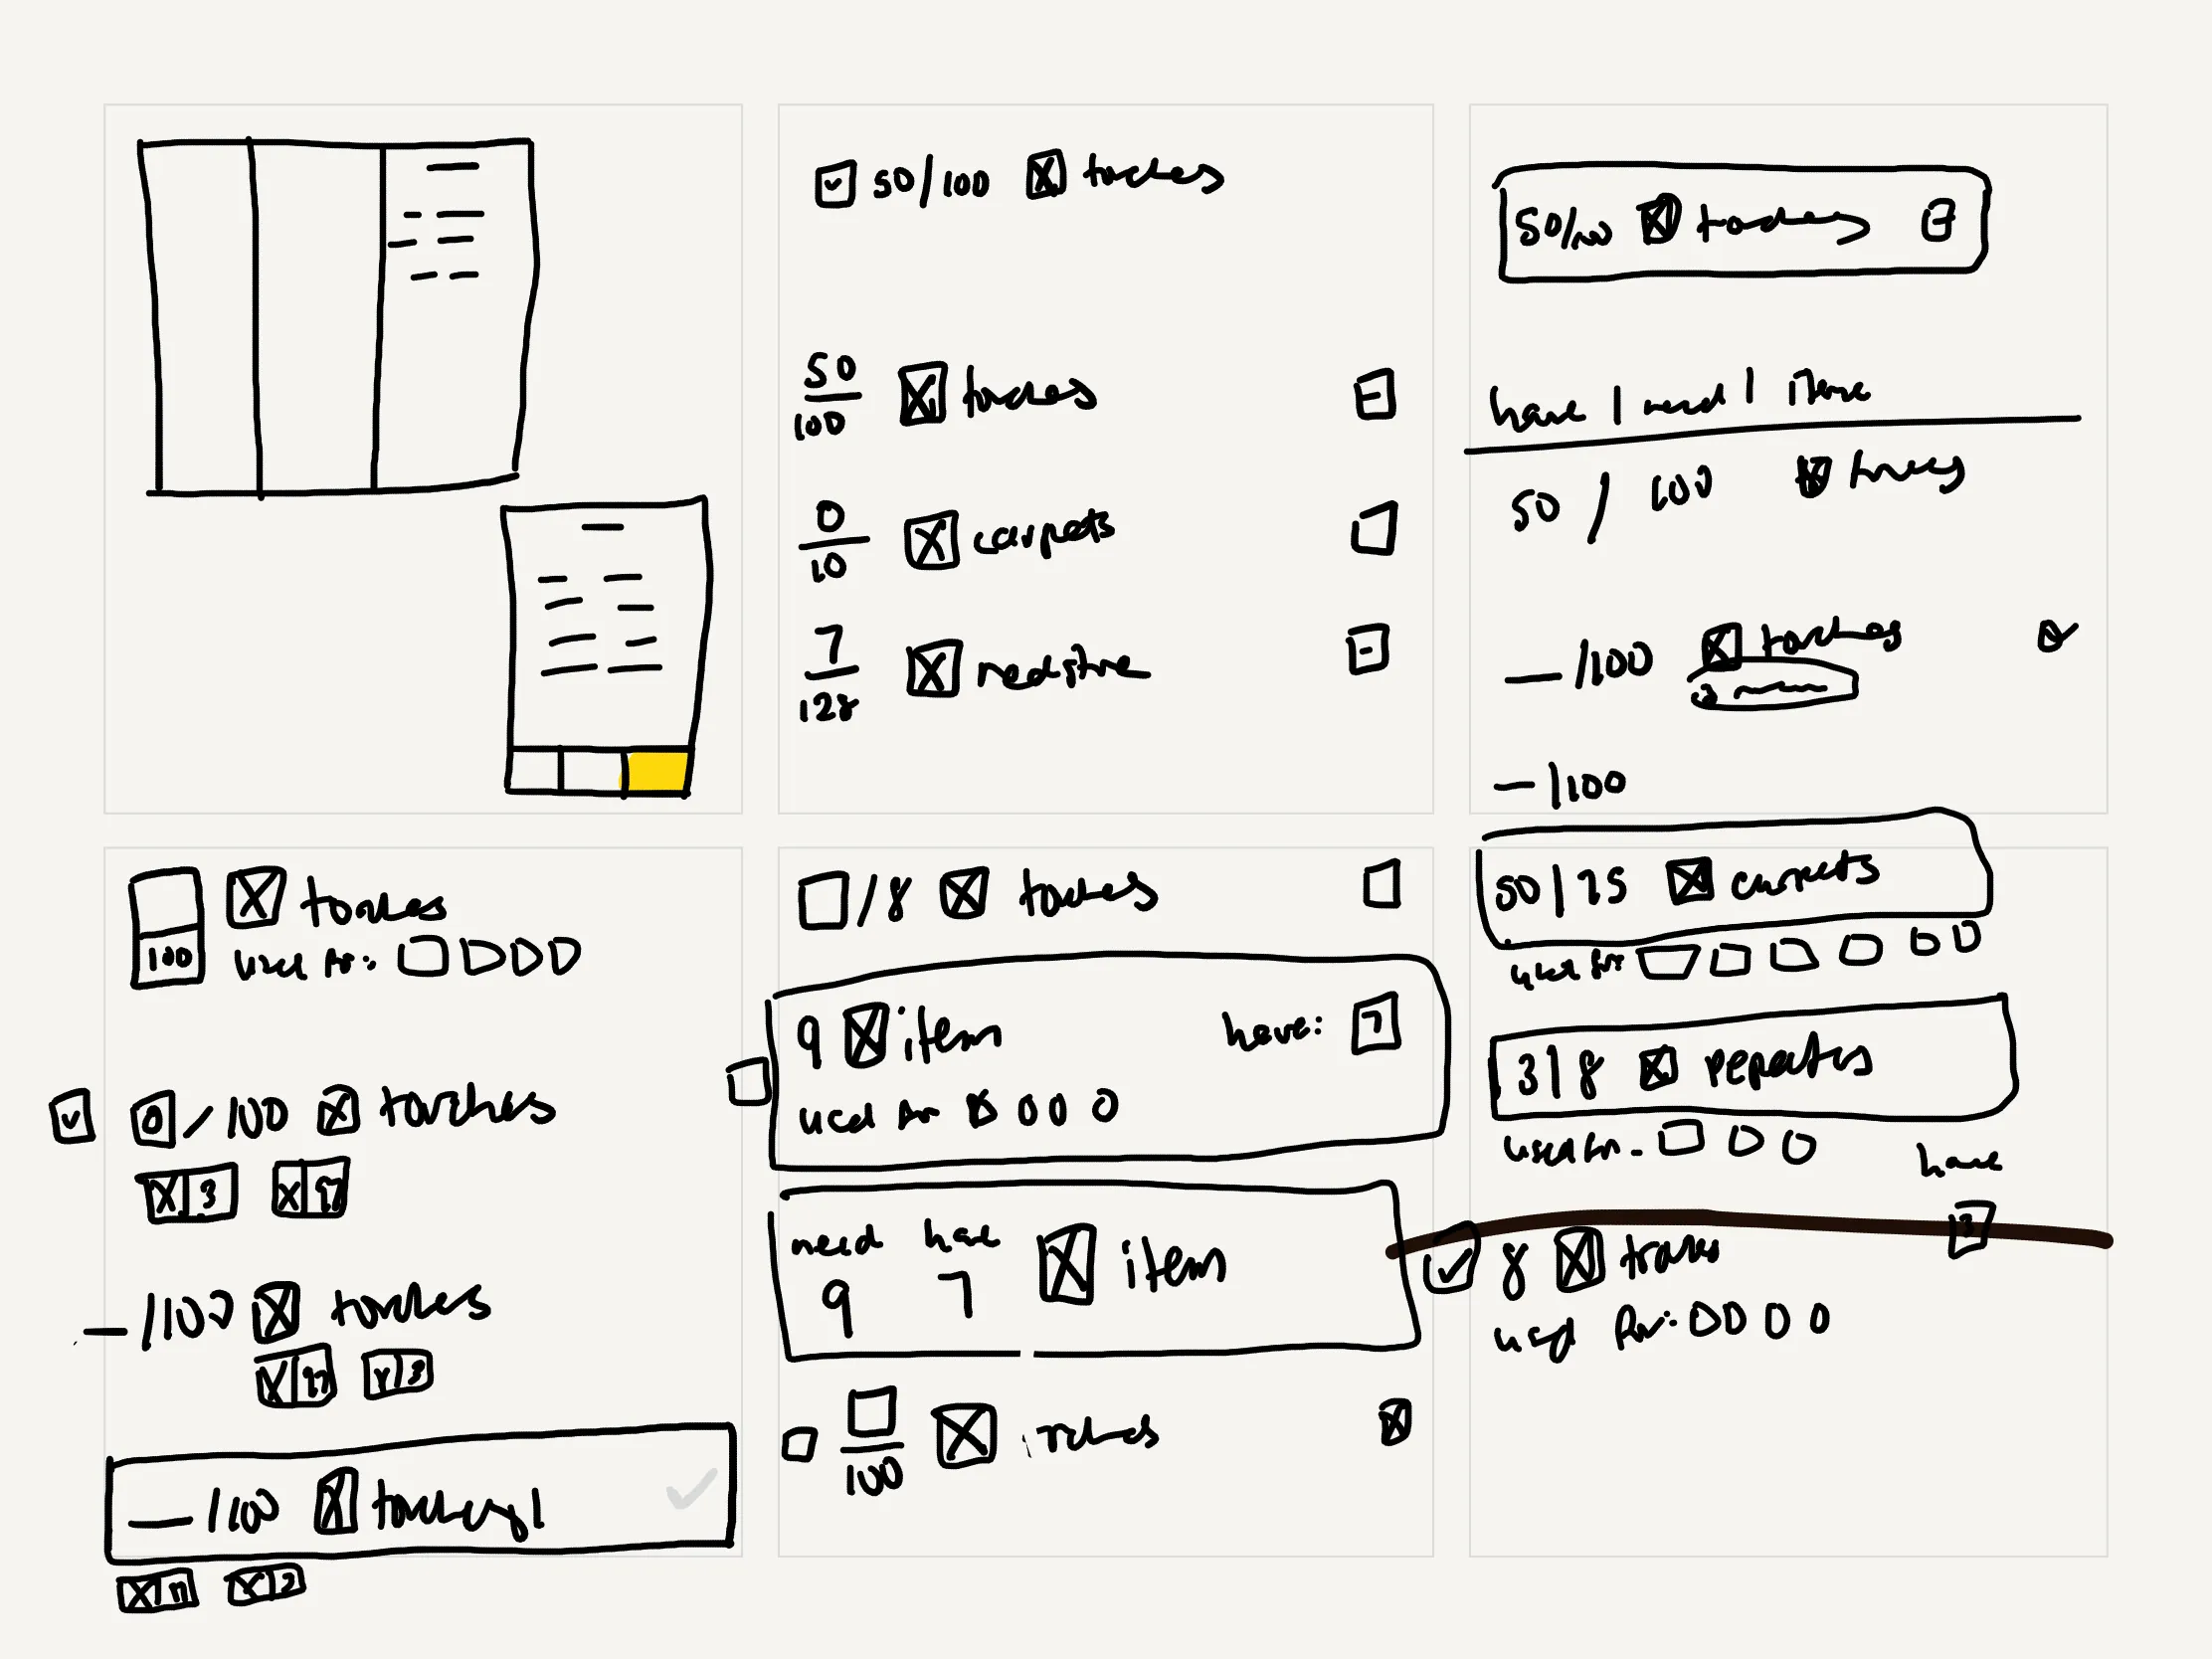 50/100 torches
50/100 torches
0/10 carpets
7/128 redstone
50/100 torches
have | need | item
50 / 100
— /100 torches
— /100
100 torches
used for:
0 / 100 torches
3 17
— /100 torches
17 3
— /100 torches
/8 torches
9 item have: 7
used for
need have item
9 7
100
50 | 75 carpets
used for:
3 | 8 repeaters
used for
have
8
used for: